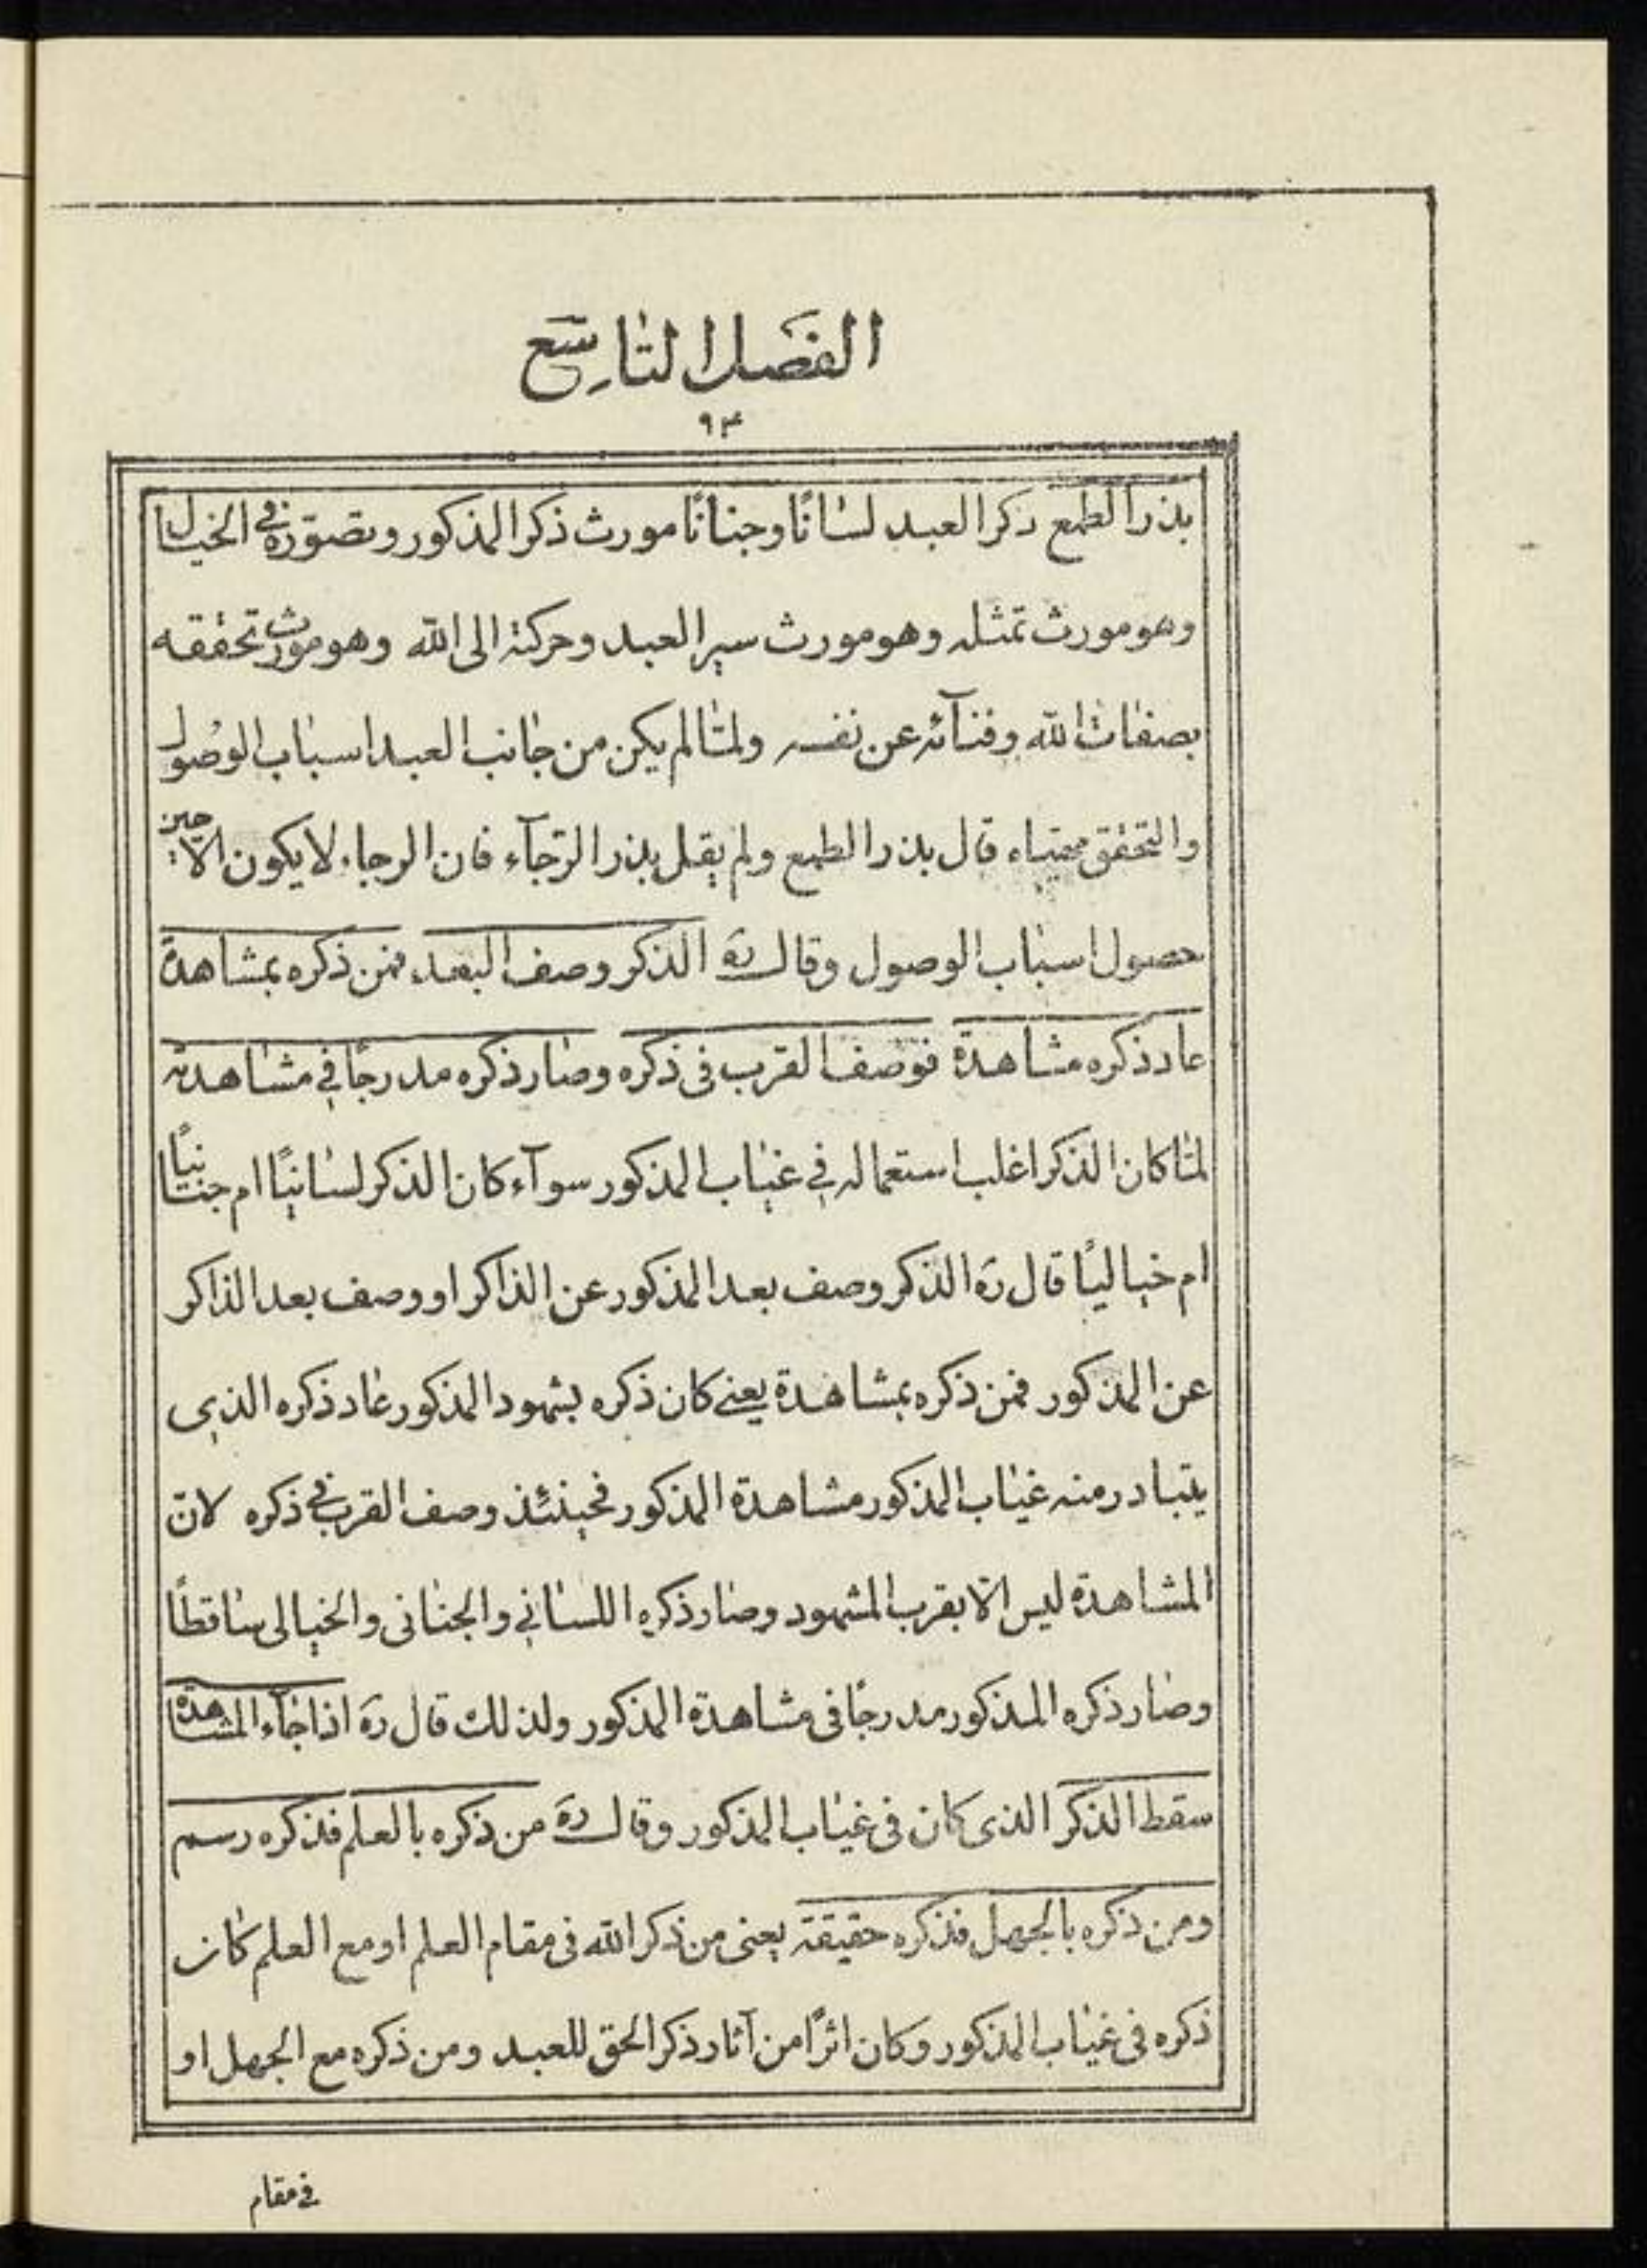 الفصل التاسع
٩٤
بذر الطمع ذكر العبد لسانًا وجنانًا مورث ذكر المذكور وتصوّره في الخيال
وهو مورث تمثله وهو مورث سير العبد وحركته الى الله وهو مورث تحققه
بصفات الله وفنآئه عن نفسه ولمّا لم يكن من جانب العبد اسباب الوصول
والتحقق مهيّاه قال بذر الطمع ولم يقل بذر الرّجآء فان الرجاء لا يكون الّا حين
حصول اسباب الوصول وقال ره الذكر وصف البعد فمن ذكره بمشاهدة
عاد ذكره مشاهدة فوصف القرب فى ذكره وصار ذكره مدرجًا في مشاهدته
لمّا كان الذكر اغلب استعماله في غياب المذكور سوآء كان الذكر لسانيًا ام جنانيًا
ام خياليًا قال ره الذكر وصف بعد المذكور عن الذاكر او وصف بعد الذاكر
عن المذكور فمن ذكره بمشاهدة يعنے كان ذكره بشهود المذكور عاد ذكره الذى
يتبادر منه غياب المذكور مشاهدة المذكور فحينئذ وصف القرب في ذكره لانّ
المشاهدة ليس الّا بقرب المشهود وصار ذكره اللساني والجنانى والخيالى ساقطًا
وصار ذكره المذكور مدرجًا فى مشاهدة المذكور ولذلك قال ره اذا جآء المشاهدة
سقط الذكر الذى كان فى غياب المذكور وقال ره من ذكره بالعلم فذكره رسم
ومن ذكره بالجهل فذكره حقيقة يعنى من ذكر الله فى مقام العلم او مع العلم كان
ذكره فى غياب المذكور وكان اثرًا من آثار ذكر الحق للعبد ومن ذكره مع الجهل او
في مقام